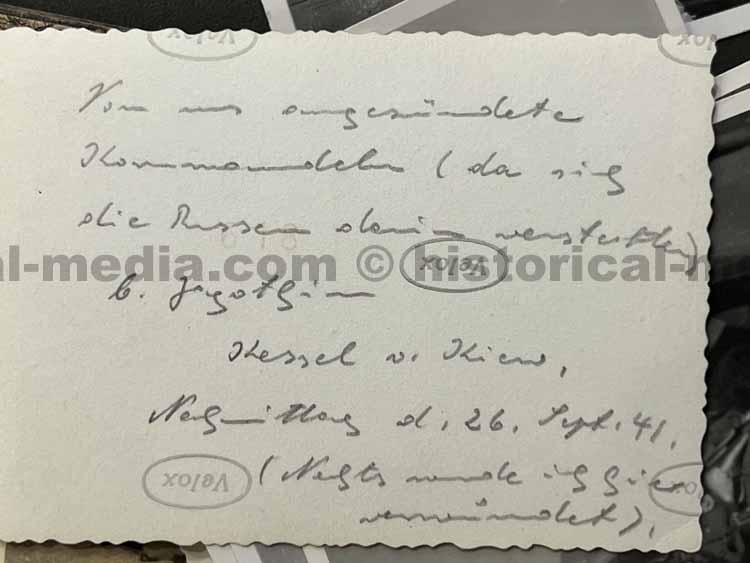 Velox
Velox
Von uns angezündete
Kornmandeln (da sich
die Russen darin versteckten)
al-media.com © historical-m
Velox
b. Jagothin
Kessel v. Kiew,
Nachmittag d. 26. Sept. 41.
Velox
(Nachts wurde ich hier
verwundet).